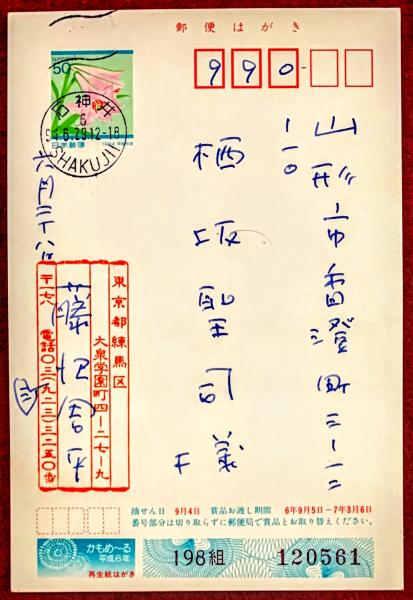 郵便はがき
NIPPON
50
日本郵便
石神井
6
94.6.29.12-18
SHAKUJII
990-
山形市香澄町三-一-二
一一〇
六月二十八日
東京都練馬区
大泉学園町四-二七-九
〒一七八 電話〇三(三九二三)三二五〇番
抽せん日 9月4日 賞品お渡し期間 6年9月5日-7年3月6日
番号部分は切り取らずに郵便局で賞品とお取り替えください。
かもめ～る
平成6年
再生紙はがき
198組
120561